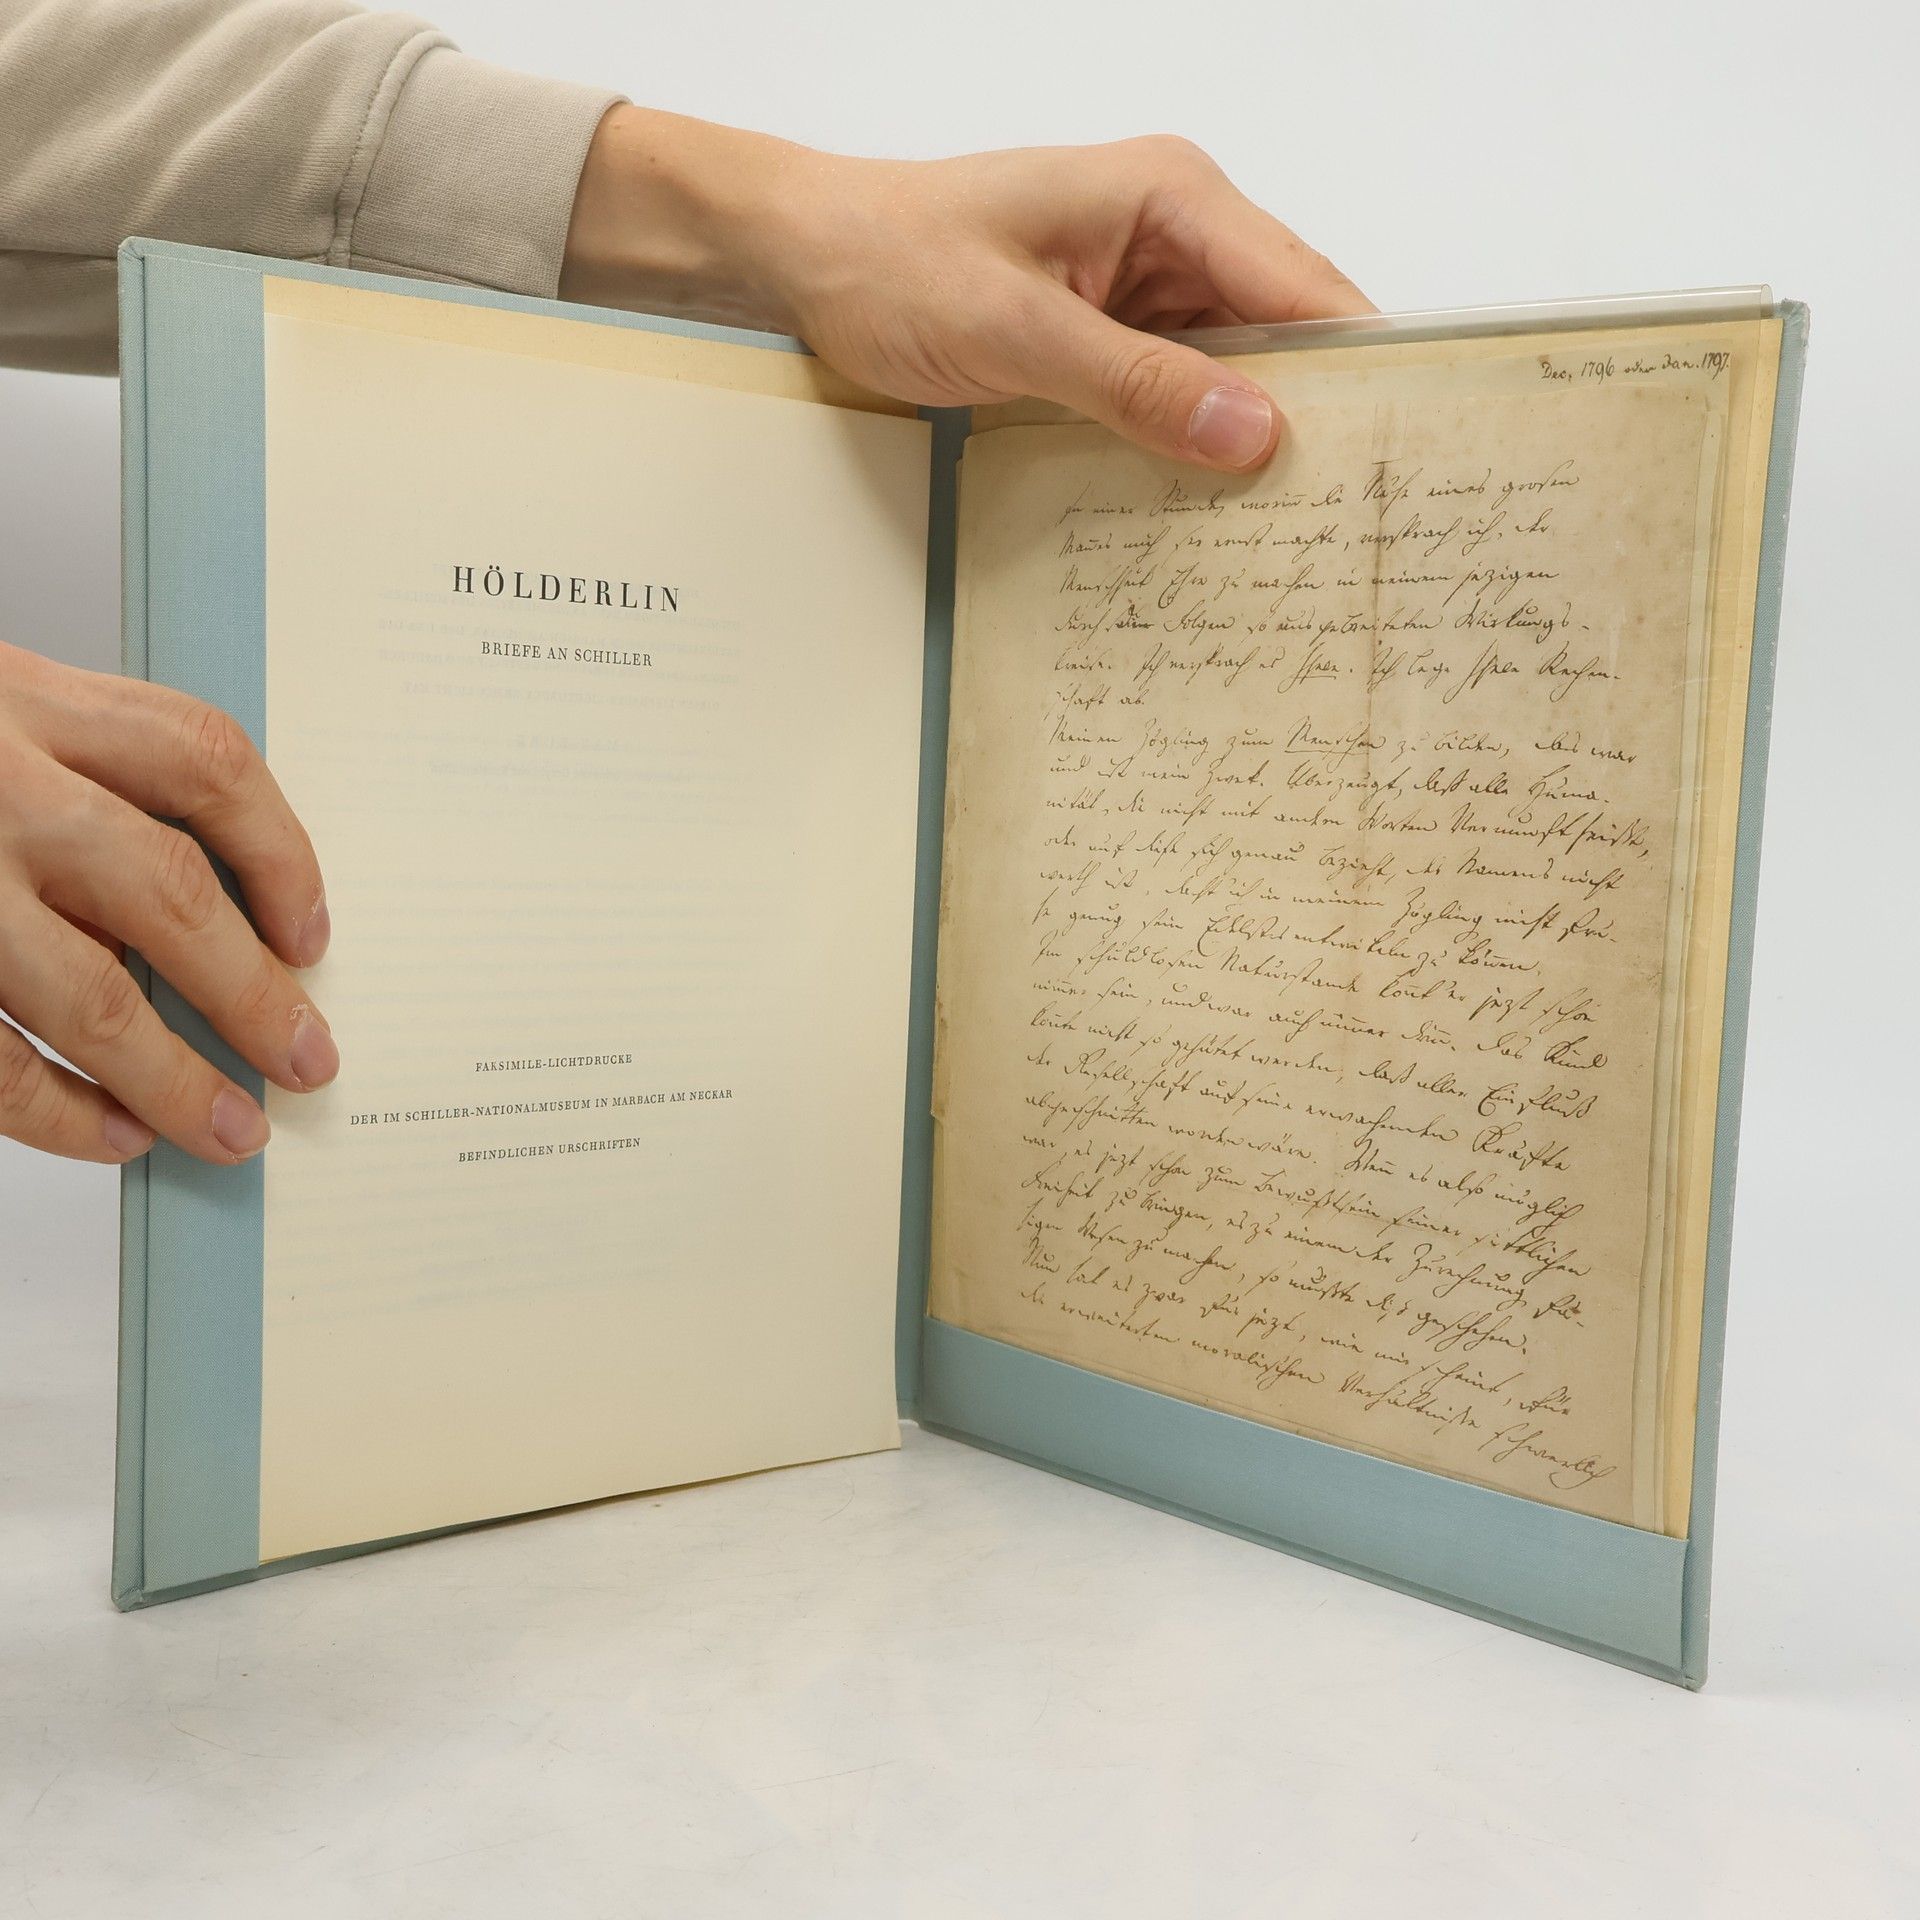 HÖLDERLIN
BRIEFE AN SCHILLER
FAKSIMILE-LICHTDRUCKE
DER IM SCHILLER-NATIONALMUSEUM IN MARBACH AM NECKAR
BEFINDLICHEN URSCHRIFTEN
Dec. 1796 oder Jan. 1797.
In einer Stunde, worin die Nähe eines grosen
Mañes mich ser ernst machte, versprach ich, der
Menschheit Ehre zu machen in meinem jezigen
durch die Folgen so ausgebreiteten Wirkungs-
kreise. Ich versprach es Ihnen. Ich lege Ihnen Rechen-
schaft ab.
Meinen Zögling zum Menschen zu bilden, das war
und ist mein Zwek. Überzeugt, daß alle Huma-
nität, die nicht mit andern Worten Vernunft heißt,
oder auf diese sich genau bezieht, des Namens nicht
werth ist, dacht' ich in meinem Zögling nicht frü-
he genug sein Edelstes entwikeln zu köñen.
Im schuldlosen Naturstande koñt' er jezt schon
nim̄er sein, und war auch nim̄er drin. Das Kind
koñte nicht so gehütet werden, daß aller Einfluß
der Gesellschaft auf seine erwachenden Kräfte
abgeschnitten worden wäre. Weñ es also möglich
war, es jezt schon zum Bewußtsein seiner sittlichen
Freiheit zu bringen, es zu einem der Zurechnung fä-
higen Wesen zu machen, so mußte diß geschehen.
Nun hat es zwar für jezt, wie mir scheint, für
die erweiterten moralischen Verhältnisse schwerlich